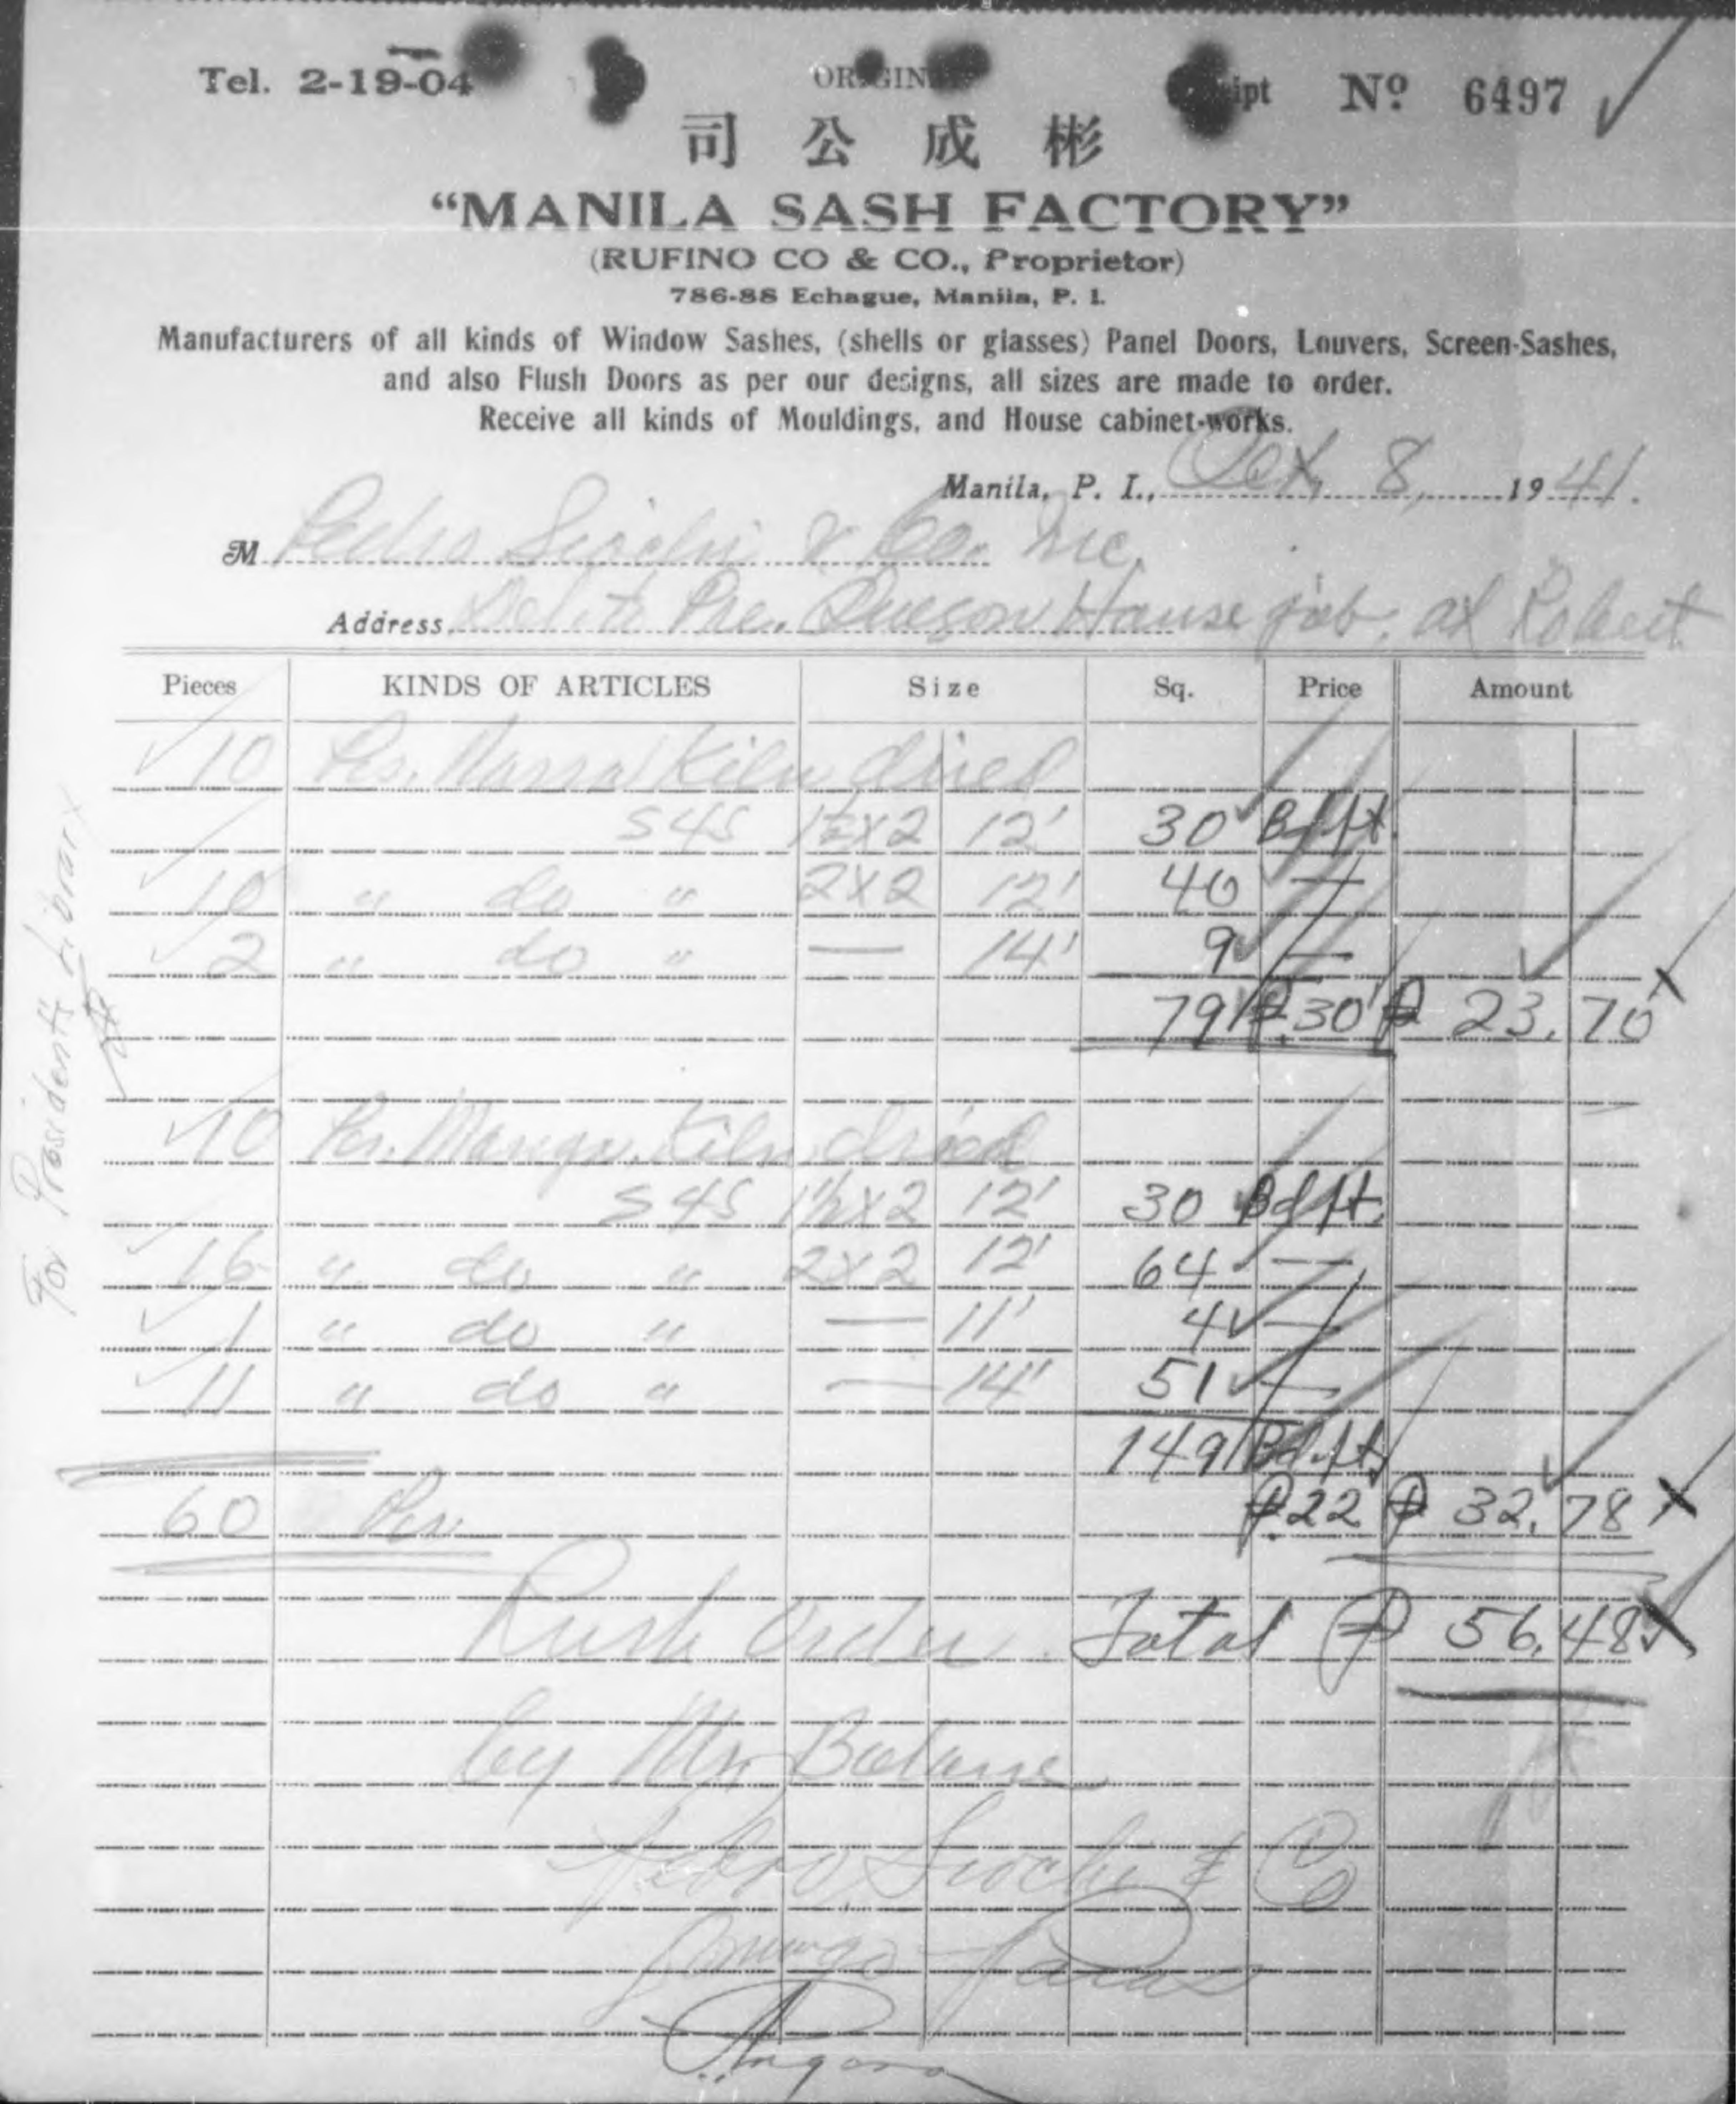 Tel. 2-19-04 ORIGIN Nº 6497
司公成彬
“MANILA SASH FACTORY”
(RUFINO CO & CO., Proprietor)
786-88 Echague, Manila, P. I.
Manufacturers of all kinds of Window Sashes, (shells or glasses) Panel Doors, Louvers, Screen-Sashes,
and also Flush Doors as per our designs, all sizes are made to order.
Receive all kinds of Mouldings, and House cabinet-works.
Manila, P. I., Oct 8, 1941.
M Pedro Siochi & Co. Inc.
Address Del. to Pre. Quezon House job. at Robert
Pieces KINDS OF ARTICLES Size Sq. Price Amount
10 Pcs. Narra Kiln dried
S4S 1½x2 12' 30 Bdft.
10 " do " 2x2 12' 40 —
2 " do " — 14' 9 —
79 ₱.30 ₱ 23.70
10 Pcs. Kiln dried
S4S 1½x2 12' 30 Bdft.
16 " do " 2x2 12' 64 —
1 " do " — 11' 4 —
11 " do " — 14' 51 —
149 Bdft.
60 Pcs. ₱.22 ₱ 32.78
Rush Order. Total ₱ 56.48
by Mr.
Pedro Siochi & Co
For President's Library